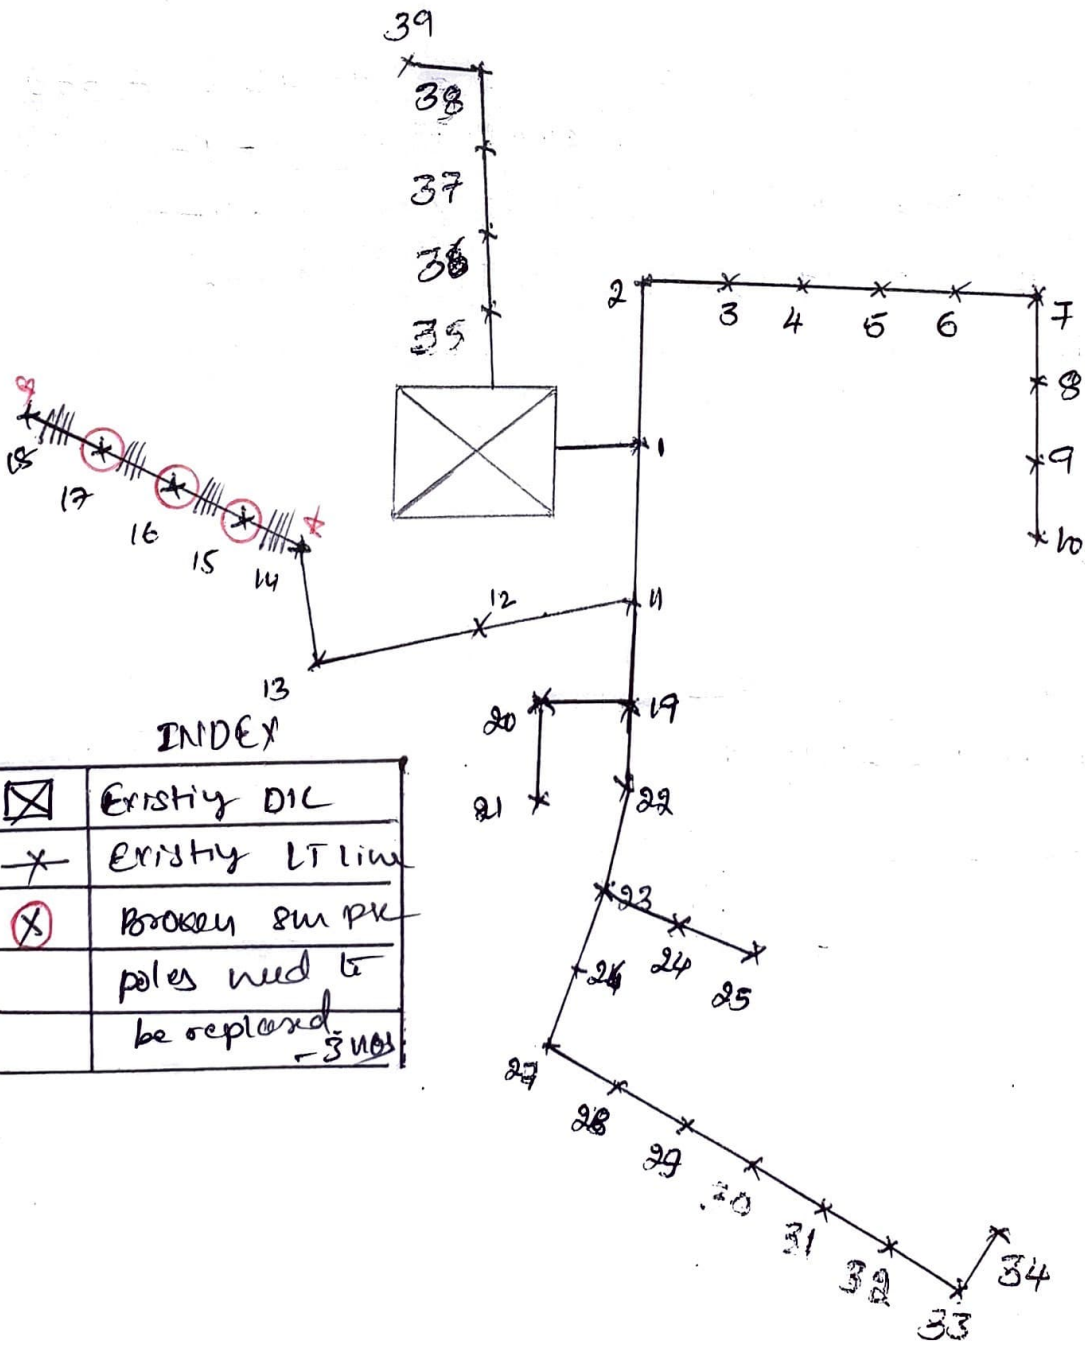 39
38
37
36
35
2
3
4
5
6
7
8
9
10
1
18
17
16
15
14
13
12
11
20
19
21
22
23
24
25
26
27
28
29
30
31
32
33
34
INDEX
Existiy
Existiy LT line
Broken 8m
poles need to
be replased
- 3 nos